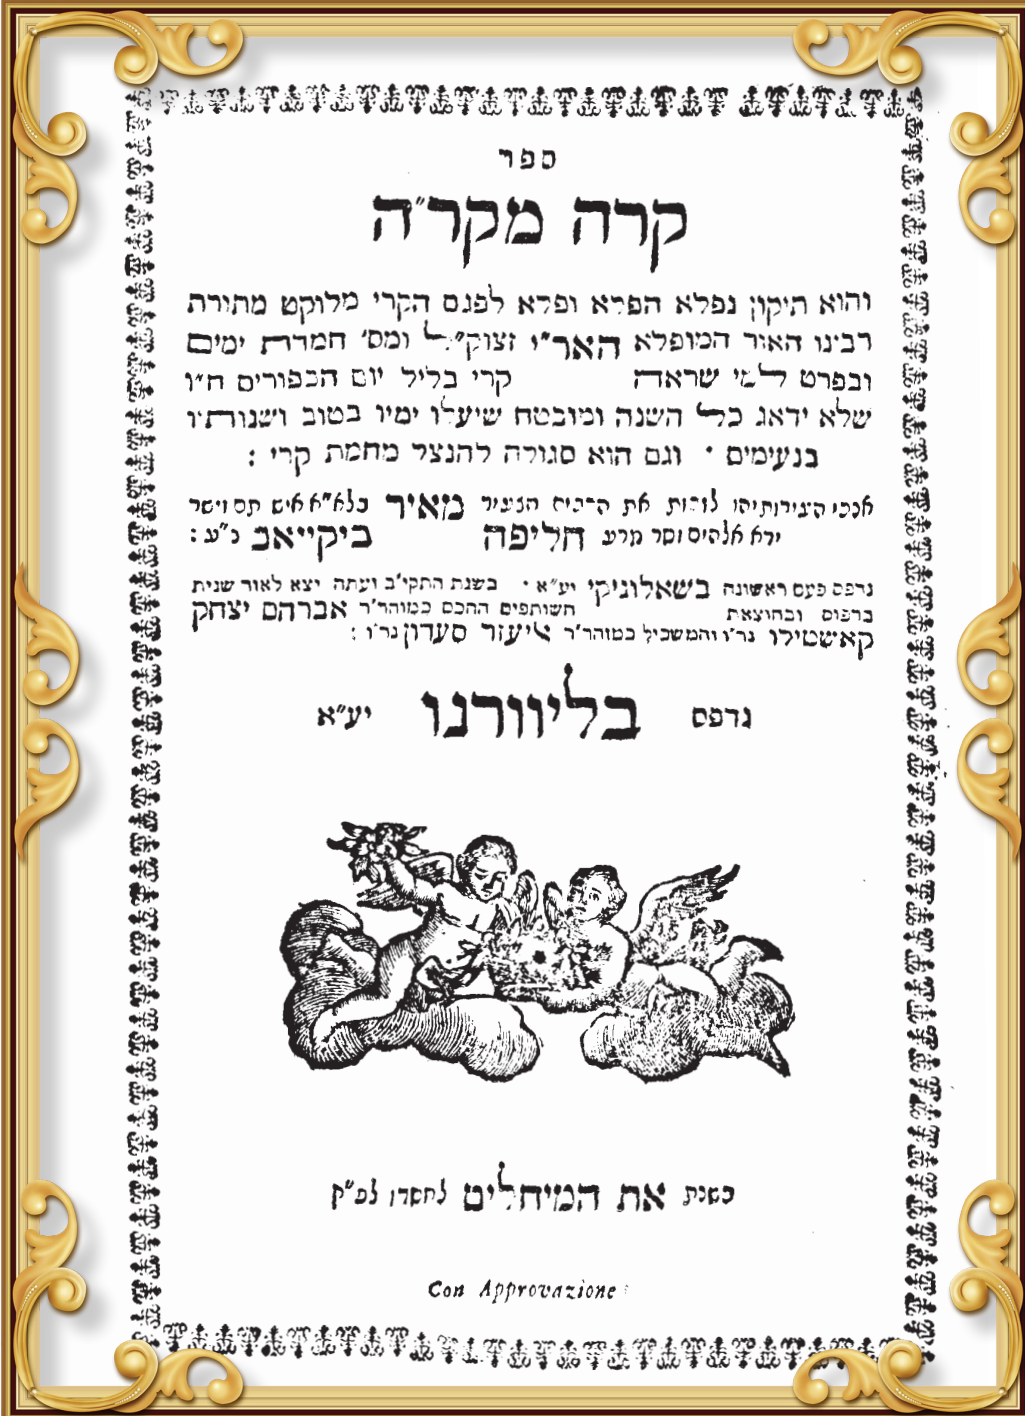 ספר
קרה מקר״ה
והוא תיקון נפלא הפלא ופלא לפגם הקרי מלוקט מתורת
רבינו האור המופלא האר״י זצוק״ל ומס׳ חמדת ימים
ובפרט למי שראה קרי בליל יום הכפורים ח״ו
שלא ידאג כל השנה ומובטח שיעלו ימיו בטוב ושנותיו
בנעימים · וגם הוא סגולה להנצל מחמת קרי :
אנכי הצעיר ותיהו לזכות את הרבים הצעיר מאיר בלא״א איש תם וישר
ירא אלהים וסר מרע חליפה ביקייאב נ״ע :
נדפס פעם ראשונה בשאלוניקי יע״א · בשנת התקי״ב ועתה יצא לאור שנית
ברפוס ובהוצאת השותפים החכם כמוהר״ר אברהם יצחק
קאשטילו נר״ו והמשכיל כמוהר״ר אליעזר סעדון נר״ו :
נדפס בליוורנו יע״א
בשנת את המיחלים לחסדו לפ״ק
Con Approvazione